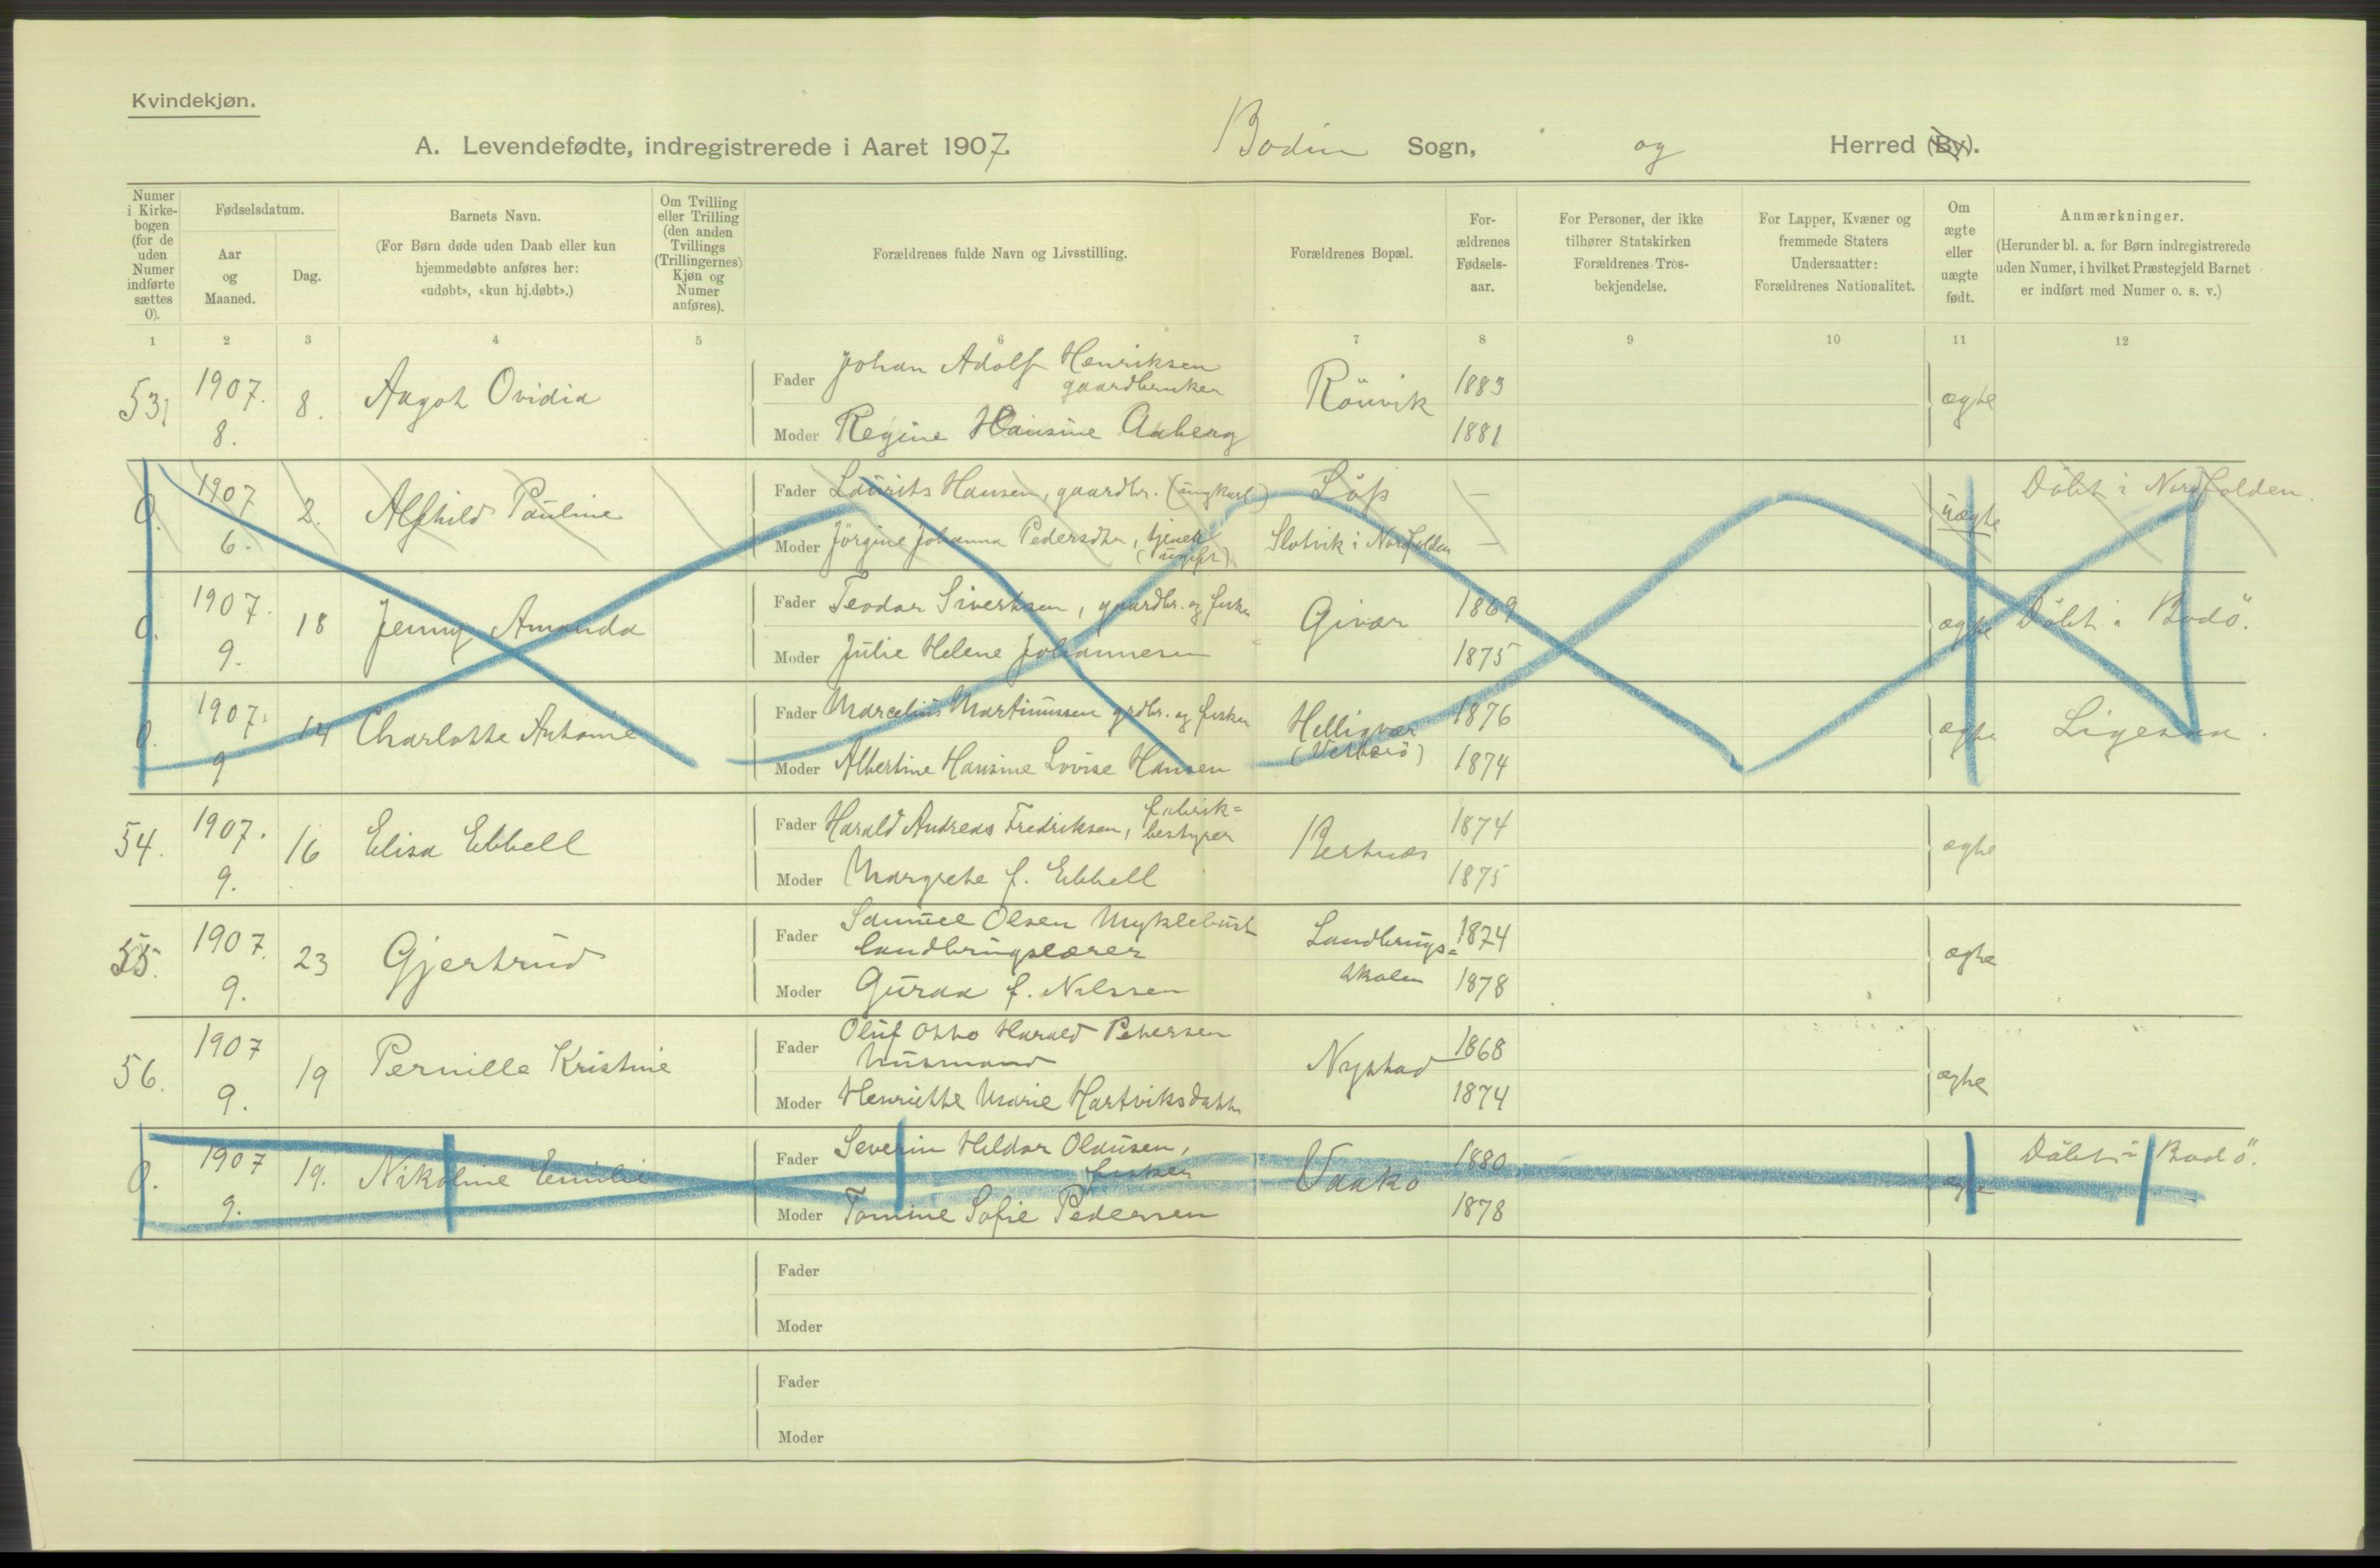 Kvindekjøn.
A. Levendefødte, indregistrerede i Aaret 1907. Bodin Sogn, og Herred (By).
Numer i Kirkebogen (for de uden Numer indførte sættes 0).
Fødselsdatum.
Aar og Maaned.
Dag.
Barnets Navn.
(For Børn døde uden Daab eller kun hjemmedøbte anføres her: «udøbt», «kun hj.døbt».)
Om Tvilling eller Trilling (den anden Tvillings (Trillingernes) Kjøn og Numer anføres).
Forældrenes fulde Navn og Livsstilling.
Forældrenes Bopæl.
Forældrenes Fødselsaar.
For Personer, der ikke tilhører Statskirken Forældrenes Trosbekjendelse.
For Lapper, Kvæner og fremmede Staters Undersaatter: Forældrenes Nationalitet.
Om ægte eller uægte født.
Anmærkninger.
(Herunder bl. a. for Børn indregistrerede uden Numer, i hvilket Præstegjeld Barnet er indført med Numer o. s. v.)
1 2 3 4 5 6 7 8 9 10 11 12
53, 1907. 8. 8. Aagot Ovidia
Fader Johan Adolf Henriksen gaardbruker Rönvik 1883 ægte
Moder Regine Hansine Aaberg 1881
0. 1907 6. 2. Alfhild Pauline
Fader Laurits Hansen, gaardbr. (ungkarl) Löp — uægte Döbt i Nordfolden.
Moder Jörgine Johanna Pedersdtr, tjenete (ugift) Slotvik i Nordfolden —
0. 1907. 9. 18 Jenny Amanda
Fader Teodor Sivertsen, gaardbr. og fisker Givær 1869 ægte Döbt i Bodö.
Moder Julie Helene Johannesen 1875
0. 1907. 9 14 Charlotte Antonie
Fader Marcelius Martinussen grdbr. og fisker Helligvær (Vesterö) 1876 ægte Ligesaa.
Moder Albertine Hansine Lovise Hansen 1874
54. 1907. 9. 16 Elisa Ebbell
Fader Harald Andreas Fredriksen, fabrik= bestyrer Bertnæs 1874 ægte
Moder Margrete f. Ebbell 1875
55. 1907. 9. 23 Gjertrud
Fader Samuel Olsen Myklebust landbrugslærer Landbrugs= skolen 1874 ægte
Moder Guraa f. Nilssen 1878
56. 1907 9. 19 Pernille Kristine
Fader Oluf Otto Harald Petersen husmand Nystad 1868 ægte
Moder Henriette Marie Hartviksdatter 1874
0. 1907 9. 19. Nikoline Emilie
Fader Severin Hildor Olausen, fisker 1880 ægte Döbt i Bodö.
Moder Tomine Sofie Pedersen 1878
Fader
Moder
Fader
Moder